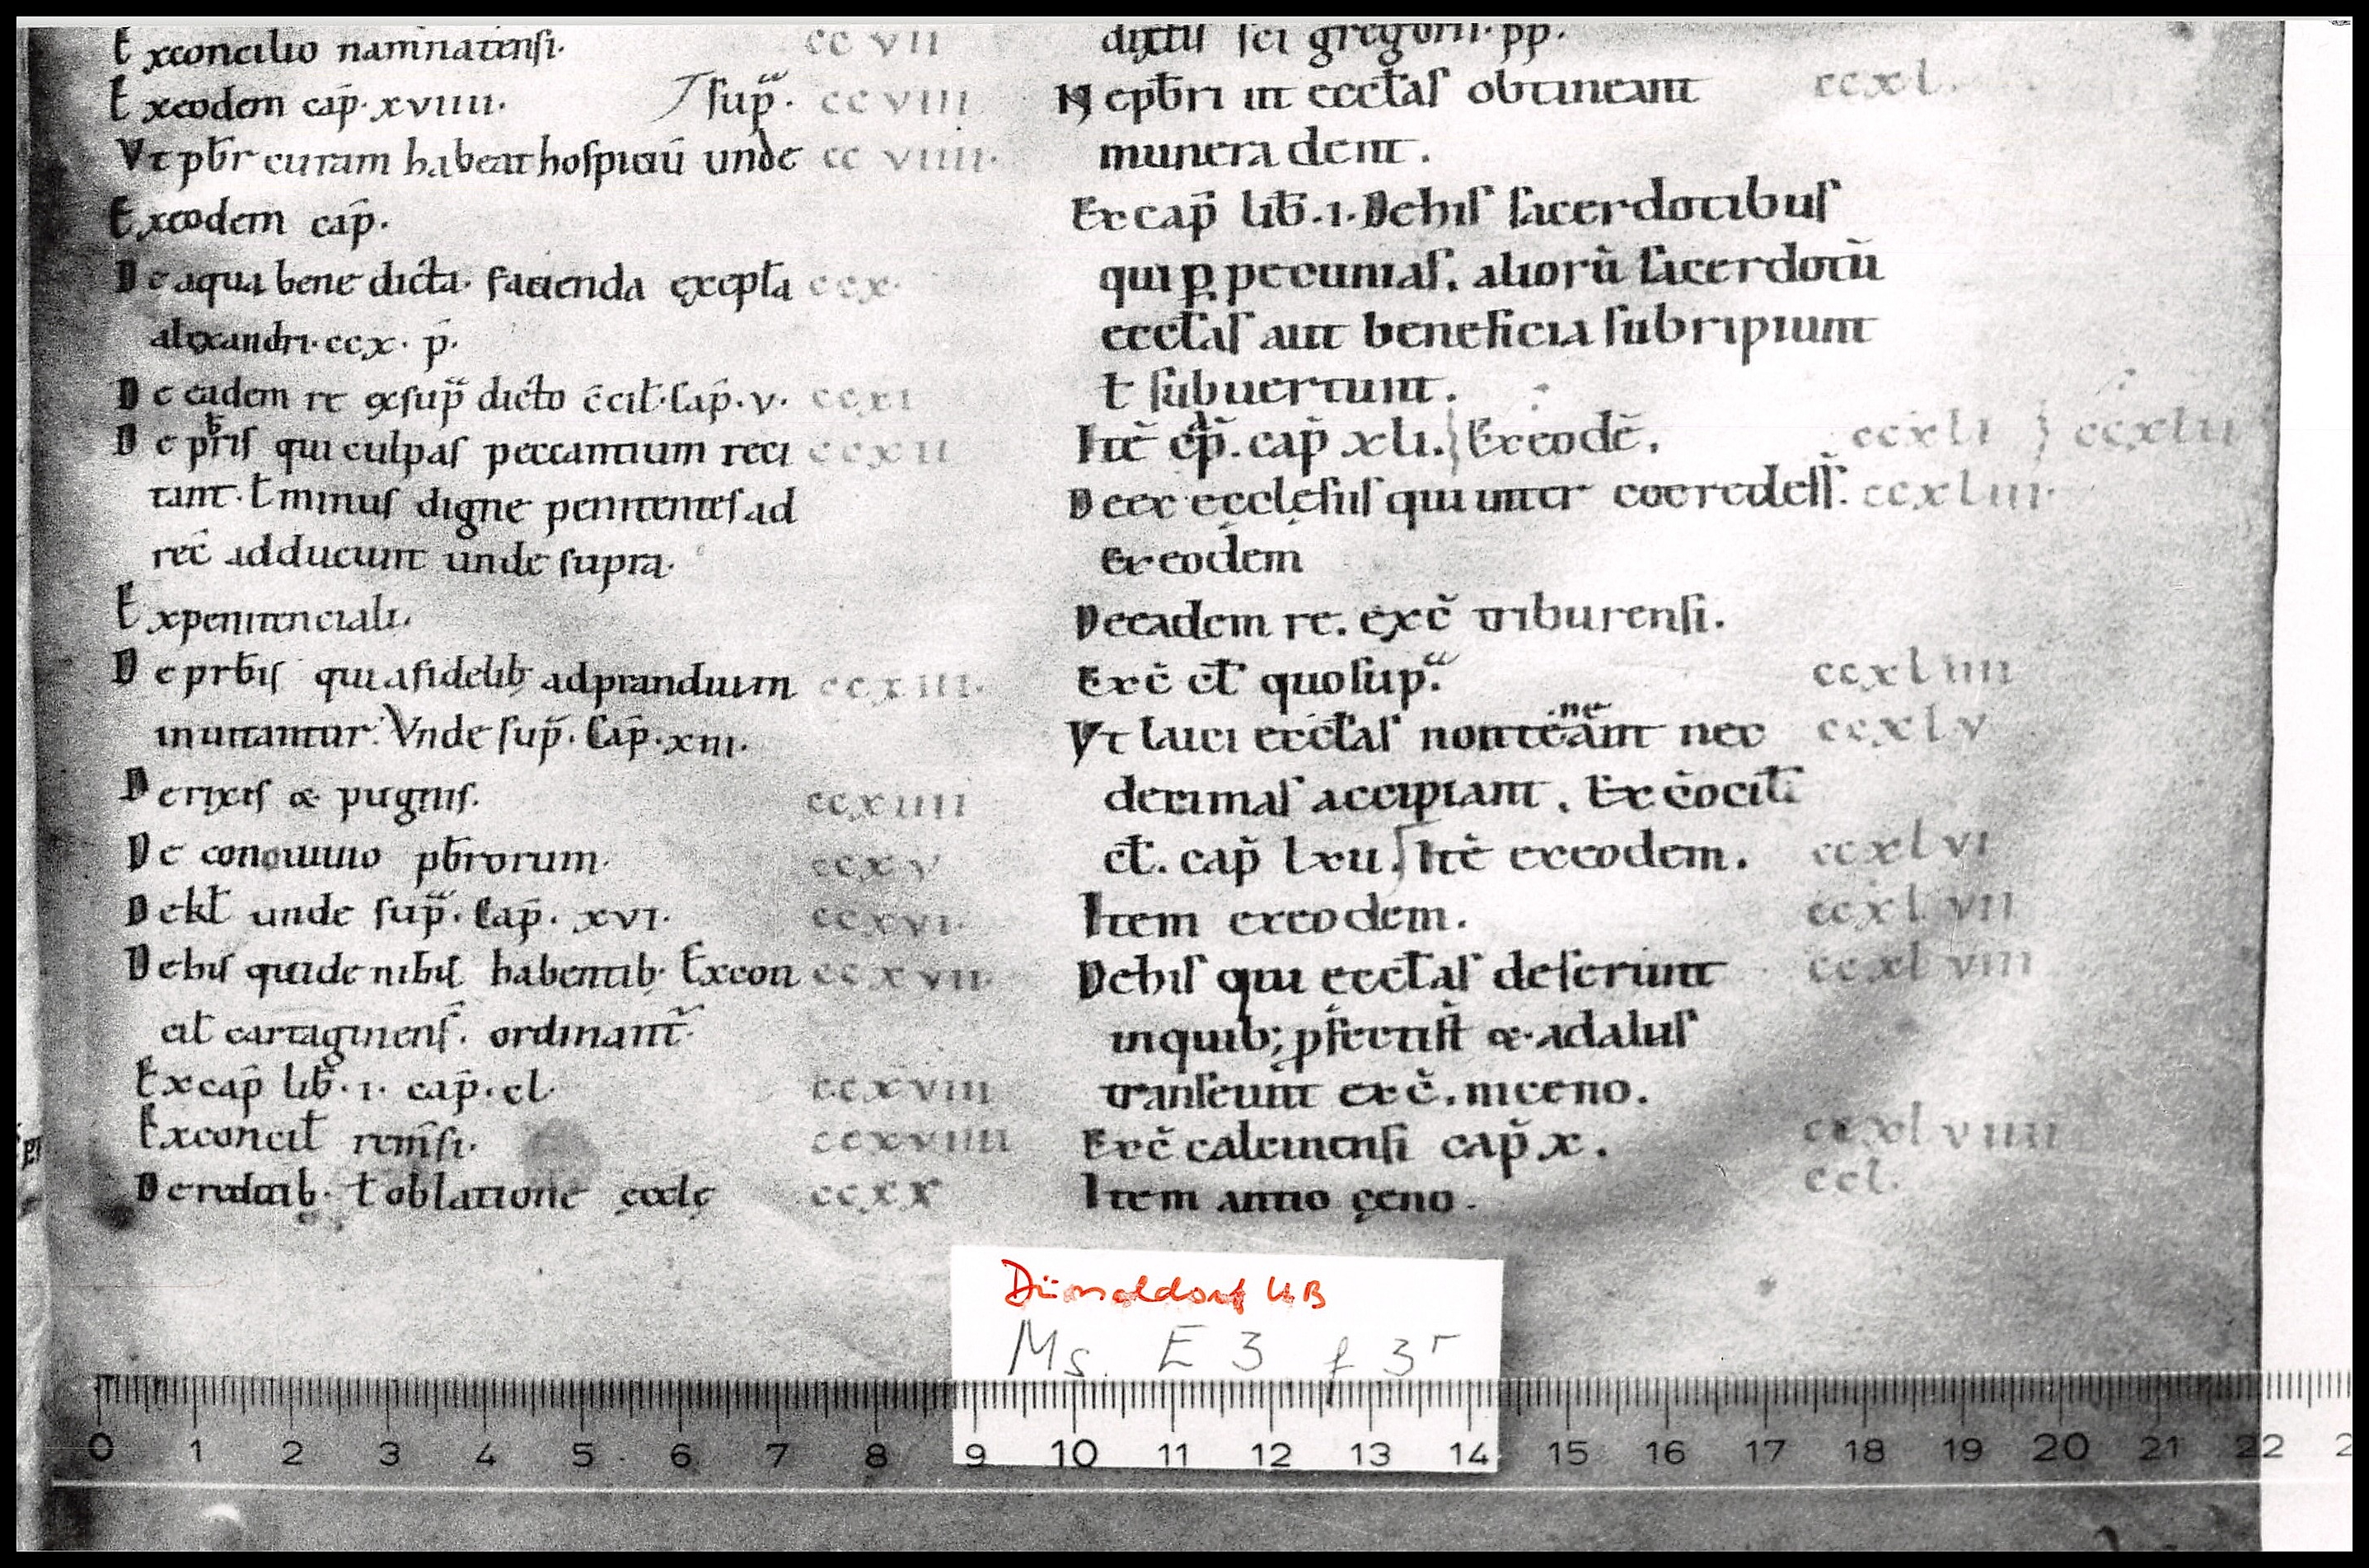 Exconcilio namnatensi. cc vii
Exeodem cap̄. xviiii. sup̄. cc viii
Vt pb̄r curam habeat hospiciū unde cc viiii.
Exeodem cap̄.
De aqua bene dicta. facienda exepła ccx.
alexandri. ccx. p̄.
De eadem re exsup̄ dicto c̄cił. Cap̄. v. ccxi
De pr̄is qui culpas peccantium reci ccxii
tant. ł minus digne penitentes ad
rec̄ adducunt unde supra.
Expenitenciali.
De prb̄is qui a fidelib; ad prandium ccxiii.
inuitantur. Vnde sup̄. Cap̄. xiii.
De rixis & pugnis. ccxiiii
De conuiuio pb̄rorum. ccxv
De kł unde sup̄. Cap̄. xvi. ccxvi.
De his qui de nihil habentib. Excon ccxvii.
cił cartaginens̄. ordinant̄.
Excap̄ lib̄. i. cap̄. cl. ccxviii
Exconcił rem̄si. ccxviiii
De reditib. ł oblatione ęcclę ccxx
dictis sci gregorii. pp.
Ne pb̄ri in eccłas obtineant ccxl.
munera dent.
Ex cap̄ lib̄. i. De his sacerdotibus
qui ꝑ pecunias. aliorū sacerdotū
eccłas aut beneficia subripiunt
ł subuertunt.
Itē ep̄. cap̄ xli. Ex eodē. ccxli ccxlii
De ex ecclesiis qui inter coeredess̄. ccxliii.
Ex eodem
De eadem re. ex c̄ triburensi.
Ex c̄ cł quo sup̄. ccxliiii
Vt laici eccłas non teneant nec ccxlv
decimas accipiant. Ex c̄ocił.
cł. cap̄ lxii. Itē exeodem. ccxlvi
Item exeodem. ccxlvii
De his qui eccłas deserunt ccxlviii
in quib; p̄fecti st̄ & ad alias
transeunt ex c̄. niceno.
Ex c̄ calcinensi cap̄ x. ccxlviiii
Item antio ceno. ccl.
Düsseldorf UB
Ms. E 3 f 3r
0 1 2 3 4 5 6 7 8 9 10 11 12 13 14 15 16 17 18 19 20 21 22 2